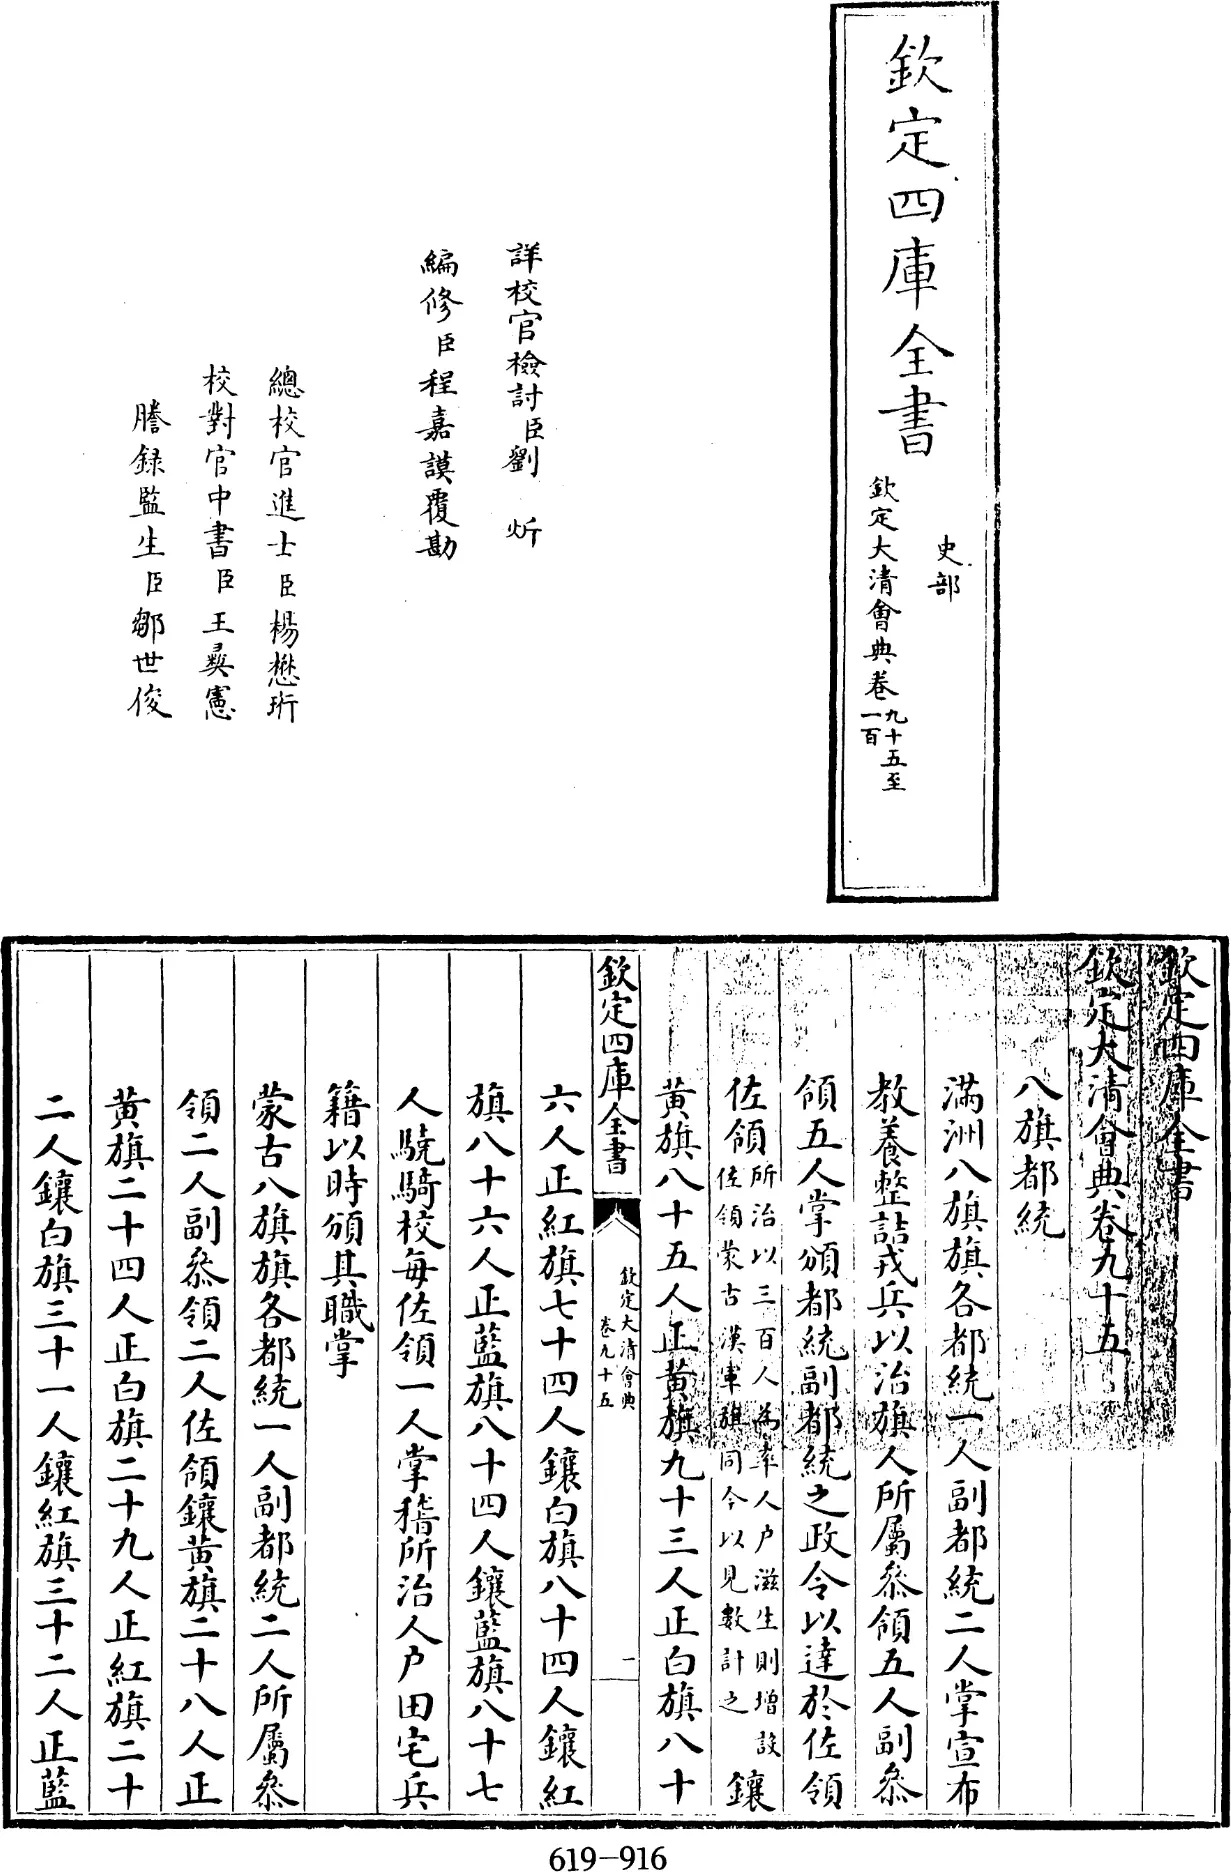 欽定四庫全書
史部
欽定大清會典卷九十五至
一百
詳校官檢討臣劉炘
編修臣程嘉謨覆勘
總校官進士臣楊懋珩
校對官中書臣王彝憲
謄録監生臣鄒世俊
欽定四庫全書
欽定大清會典卷九十五
八旗都統
滿洲八旗旗各都統一人副都統二人掌宣布
教養整詰戎兵以治旗人所屬叅領五人副叅
領五人掌頒都統副都統之政令以達於佐領
佐領所治以三百人為率人户滋生則增設
佐領蒙古漢軍旗同今以見數計之鑲
黄旗八十五人正黄旗九十三人正白旗八十
欽定四庫全書
欽定大清會典
卷九十五
一
六人正紅旗七十四人鑲白旗八十四人鑲紅
旗八十六人正藍旗八十四人鑲藍旗八十七
人驍騎校每佐領一人掌稽所治人户田宅兵
籍以時頒其職掌
蒙古八旗旗各都統一人副都統二人所屬叅
領二人副叅領二人佐領鑲黄旗二十八人正
黄旗二十四人正白旗二十九人正紅旗二十
二人鑲白旗三十一人鑲紅旗三十二人正藍
619-916